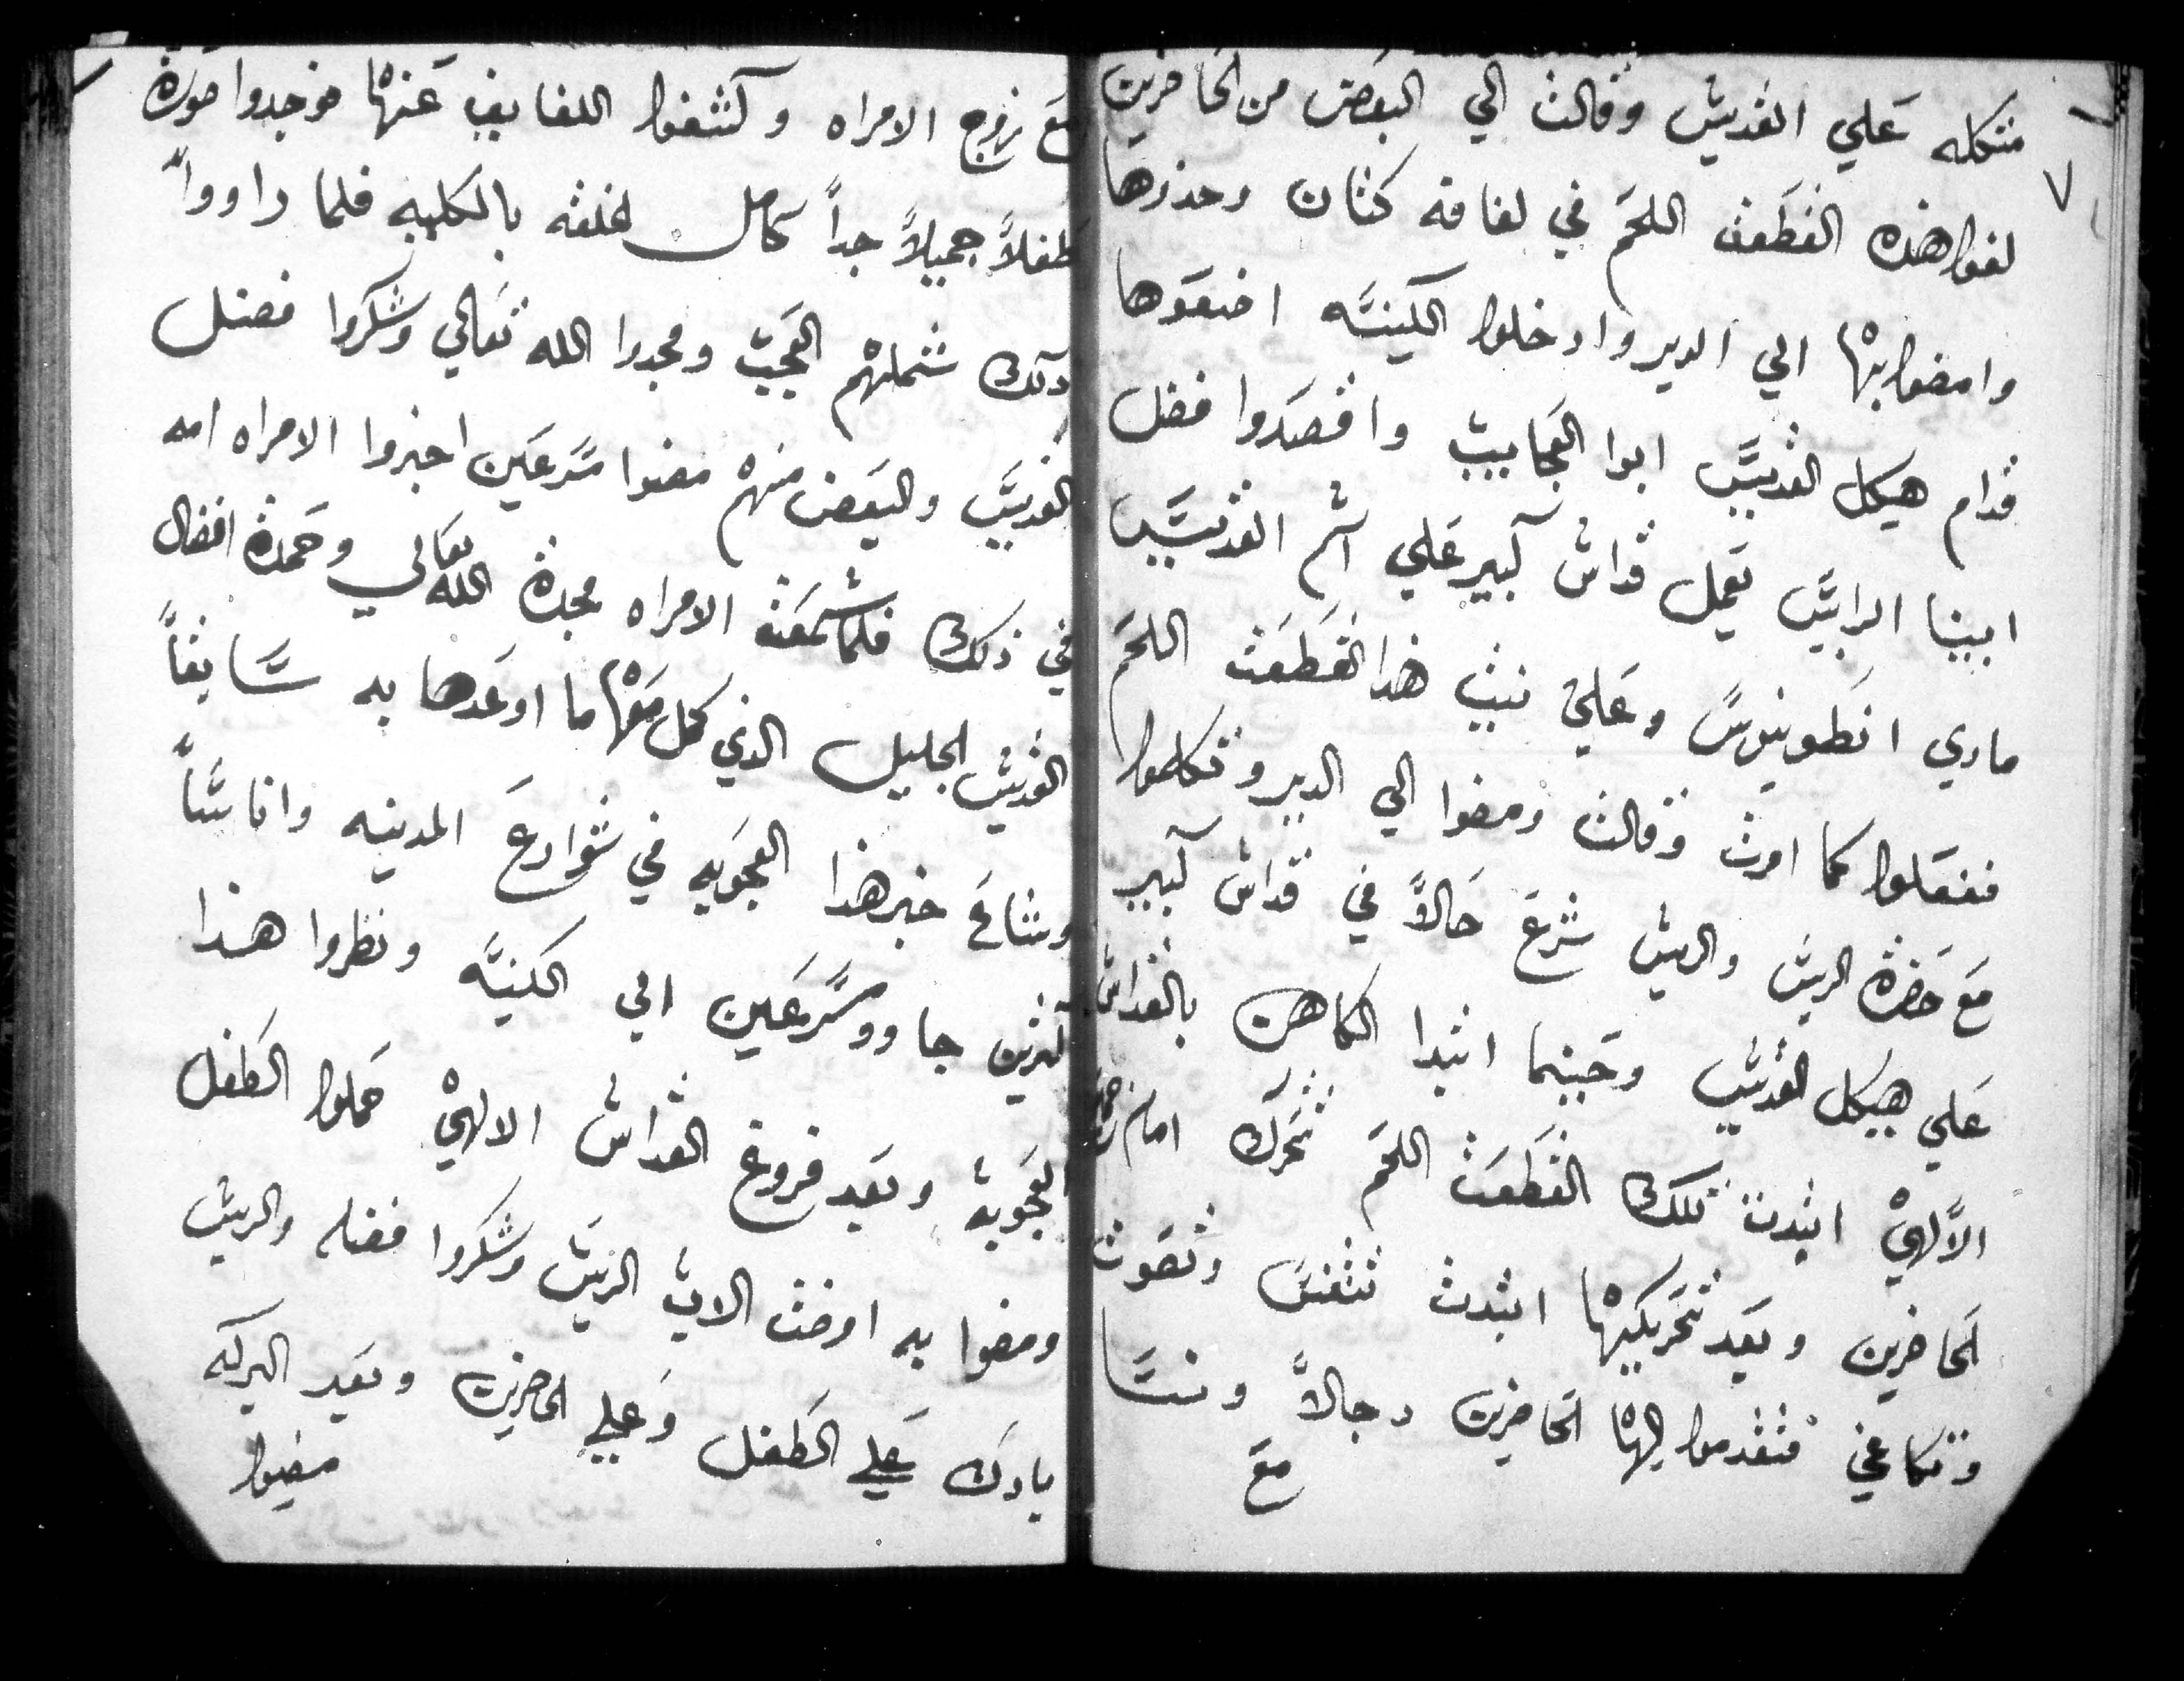 ٧
متكله عَلي القديس وقالت الي البعَض من الحَاضرين
لفوا هذه القطَعَت اللحَم في لفافه كتان وحذروها
وامضوا بها الي الدير وادخلوا الكنيسَه اضعَوها
قدام هيكل القديسَ ابوا العَجَايب واقصَدوا فضل
ابينا الرايسَ يعَمل قداس كبير عَلي اسم القديسَ
ماري انطَونيوسَ وعَلي نيت هذا القطَعَت اللحَم
ففعَلوا كما امرت وقالت ومضوا الي الدير وتكلموا
مَعَ حَضرة الريس والريس شرعَ حَالاً في قداس كبير
عَلي هيكل القديس وحَينما ابتدا الكاهن بالقداس
الالهي ابتدت تلك القطَعَت اللحَم تتحَرك امام
الحَاضرين وبعَد تحَريكها ابتدت تتنفسَ وتصَوت
وتكاغي فتقدموا اليها الحَاضرين رجالاً ونسَا
مَعَ
مَعَ زوج الامراه وكشفوا اللفايف عَنها فوجدوا صَورة
طَفلاً جميلاً جداً كامل الخلقه بالكليه فلما راووا
ذلك شملهم العَجَب ومجدوا الله تعَالي وشكروا فضل
القديسَ والبعَض منهم مضوا مسَرعَين اخبروا الامراه امه
في ذلك فلما سمعَت الامراه مجدة الله تعَالي وحَمدة افضال
القديس الجليل الذي كمل مَعَها ما اوعَدها به سَابقاً
وشاعَ خبر هذا العَجَوبه في شوارعَ المدينه واناسَاً
كثيرين جاووا مسَرعَين الي الكنيسَه ونظروا هذا
العَجَوبه وبعَد فروغ القداس الالهي حَملوا الطَفل
ومضوا به اوضت الاب الريسَ وشكروا فضله والريس
بارك عَلي الطَفل وعَلي الحاضرين وبعَد البركه
مضيوا